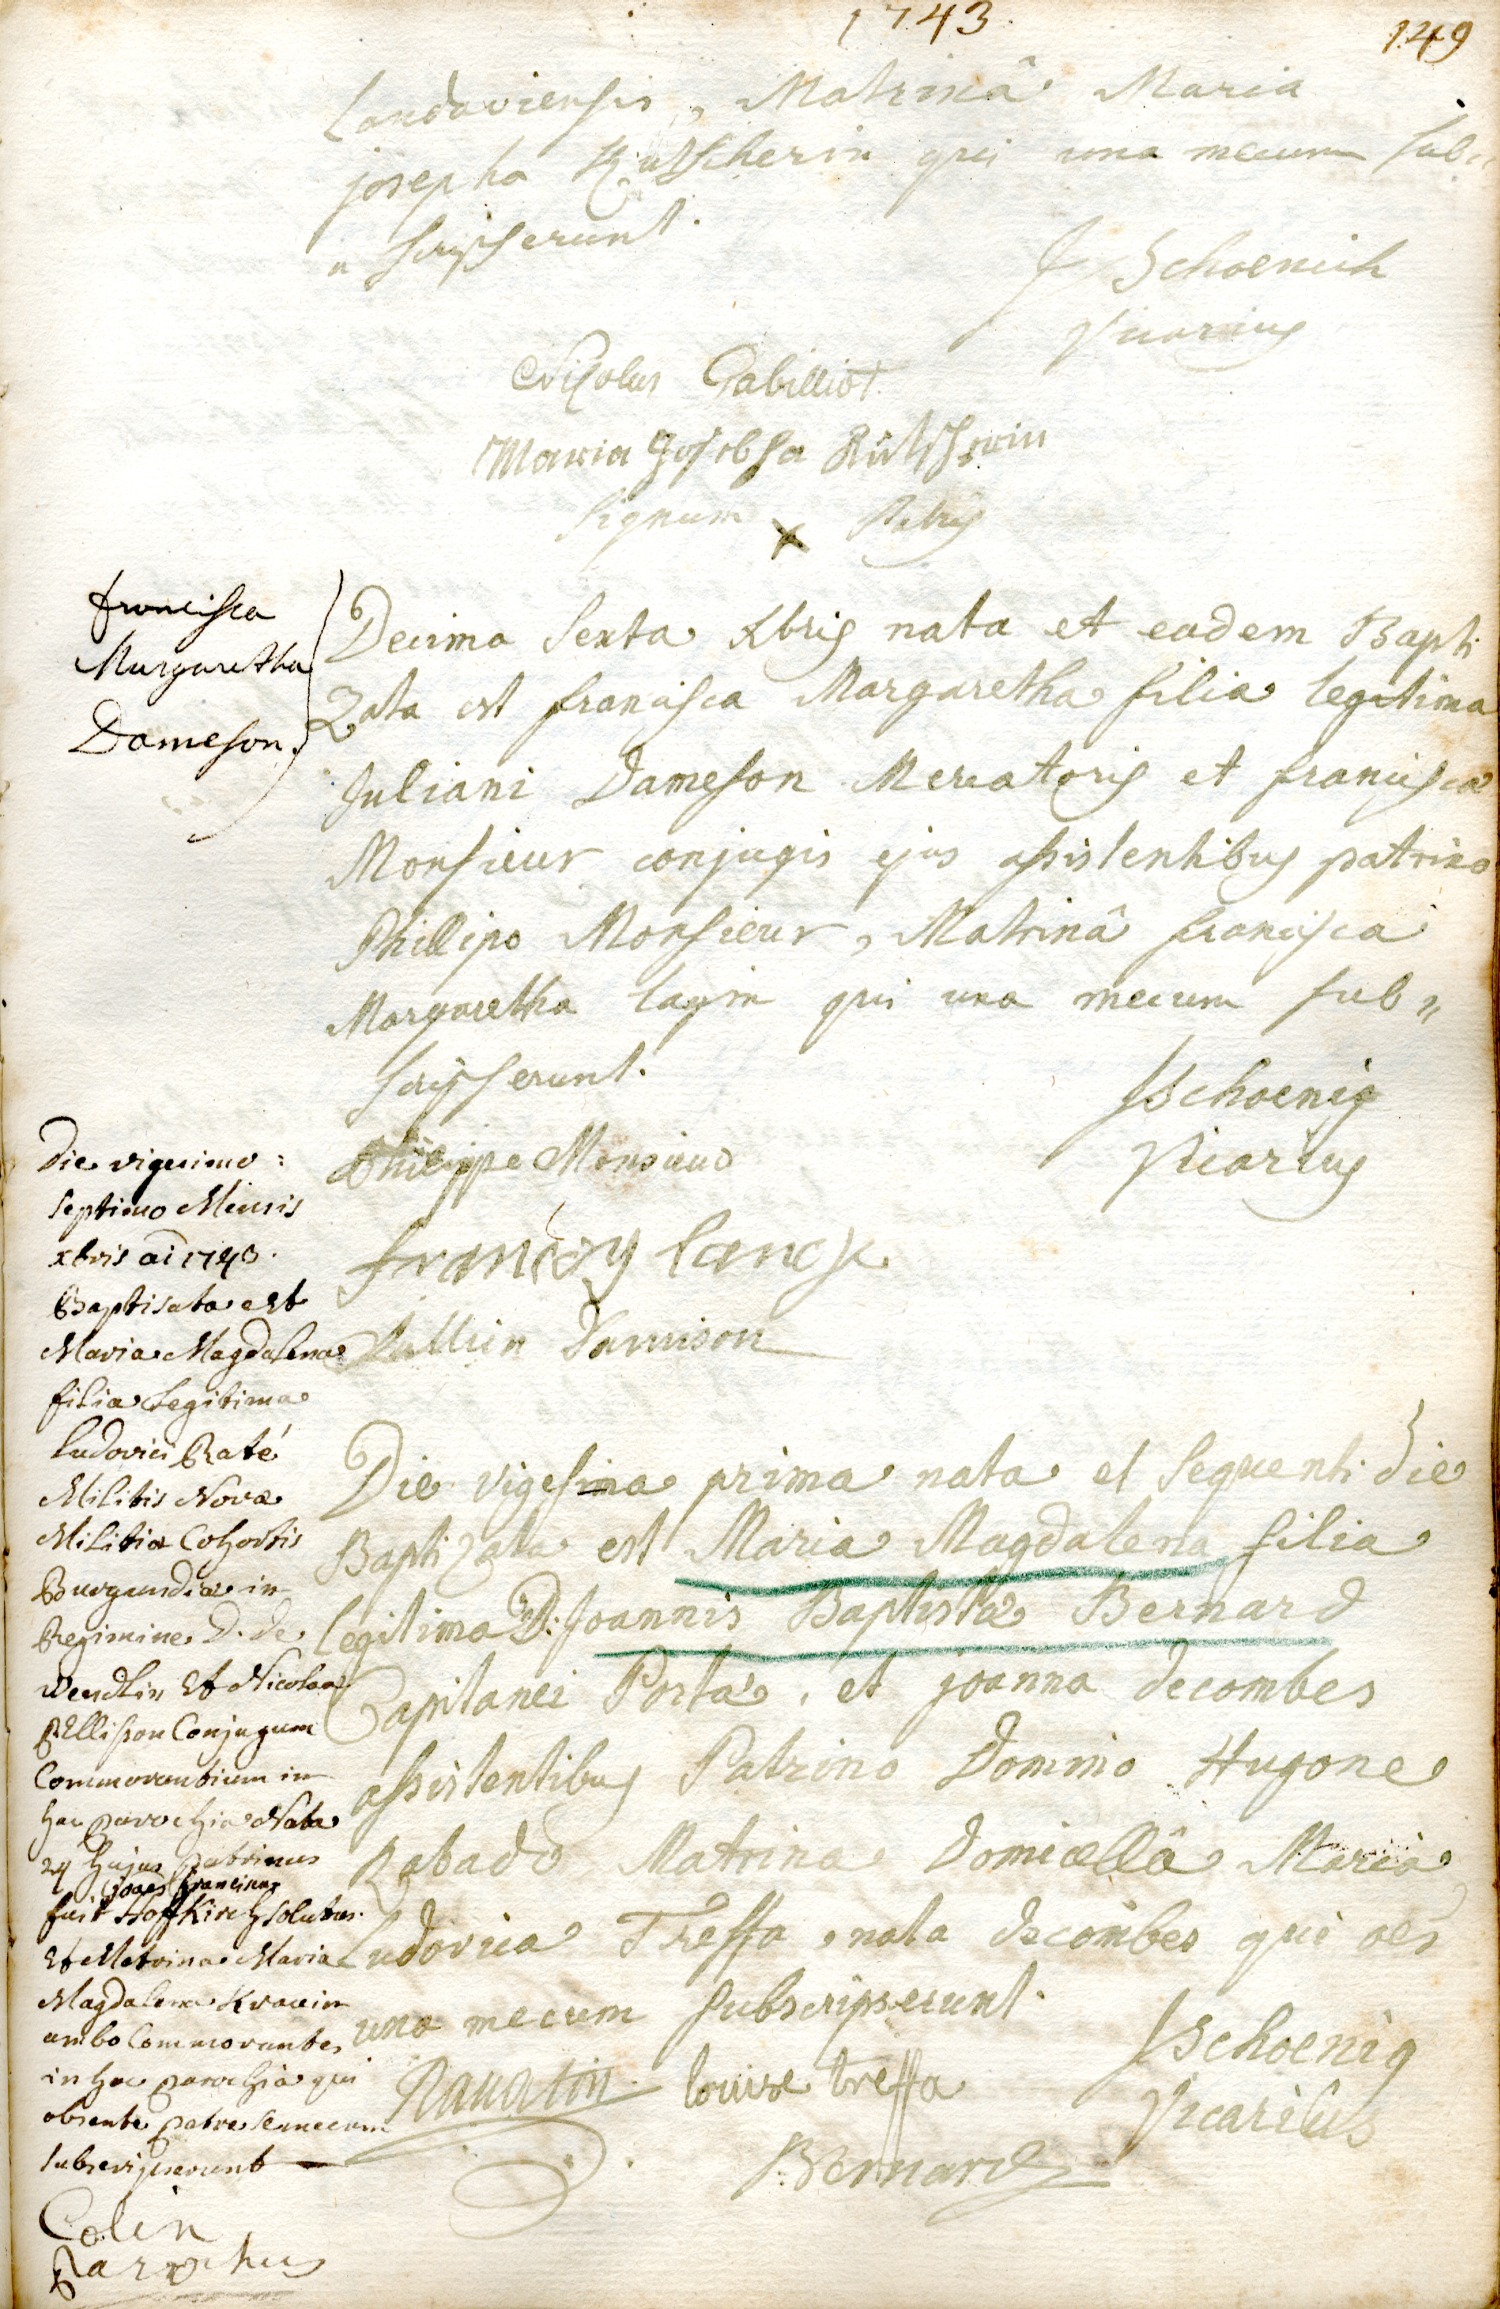 1743.
149
Landaviensis, Matrinâ Maria
josepha Kutscherin qui una mecum sub„
„ scripserunt.
J Schoenich
Vicarius
Nicolus Gabilliot
Maria Josebha
signum x Patris
francisca
Margaretha
Dameson.
Decima sexta Xbris nata et eadem Bapti
zata est francisca Margaretha filia legitima
Juliani Dameson Mercatoris et francisca
Monsieur conjugis ejus assistentibus patrino
Phillipo Monsieur, Matrinâ francisca
Margaretha qui una mecum sub„
scripserunt.
JSchoenig
Vicarius
Philippe Monsieur
Jullien Damison
Die vigesima prima nata et sequenti die
Baptizata est Maria Magdalena filia
legitima D: Joannis Baptista Bernard
Capitanei Porta, et joanna decombes
assistentibus Patrino Domino Hugone
Rabado Matrina domicellâ Maria
Ludovica Treffa, nata decombes qui oes
una mecum subscripserunt.
JSchoenig
Vicarius
louise treffa
Bernard
Die vigesimo:
septimo Mensis
xbris ai 1743.
Baptisata est
Maria Magdalena
filia legitima
ludovici Raté
Militis Nova
Militia Cohortis
Burgundia in
Regimine D. de
Vendlin Et Nicolaa
Pellison Conjugum
Commorantium in
hac parochia Nata
24 hujus patrinus
joaes francinus
fuit Hoffkirch solutus.
Et Matrina Maria
Magdalena
ambo Commorantes
in hac parochia qui
absente patre se mecum
subscripserunt
Colin
Parochus